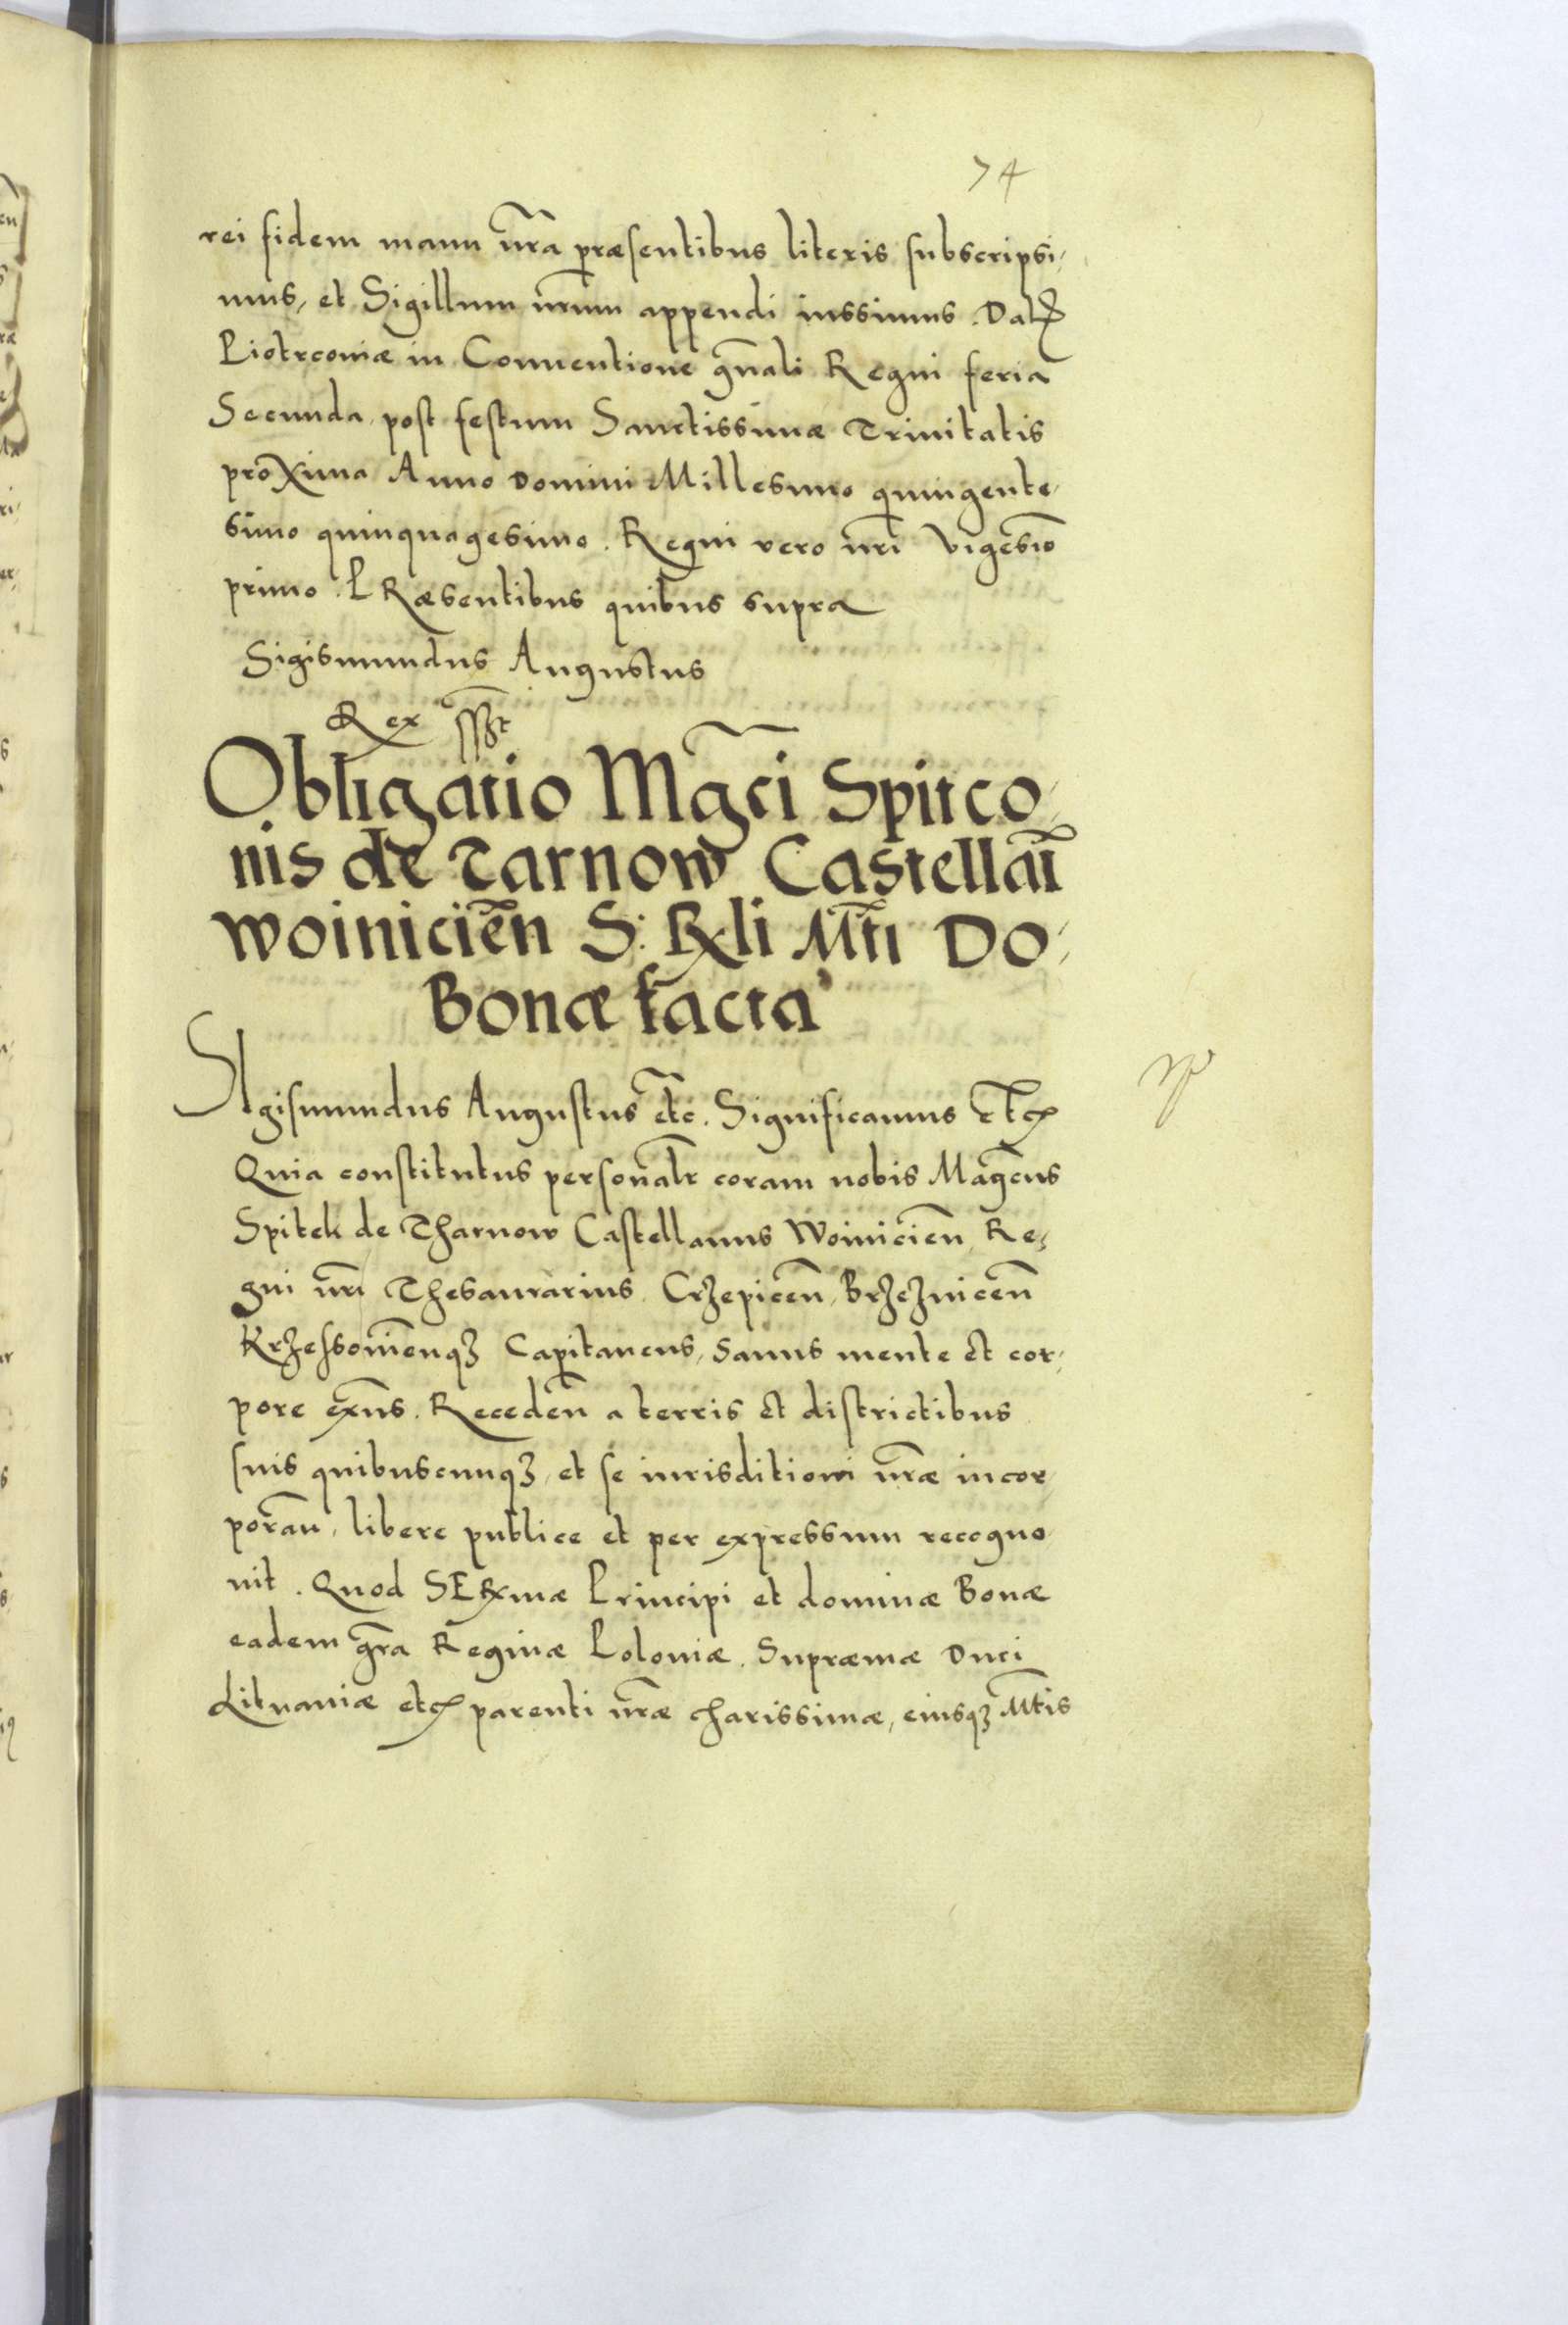 74
rei fidem manu nr̃a præsentibus literis subscripsi,
mus, et Sigillum nr̃um appendi iussimus. Dat
Piotrcoviæ in Conventione gñali Regni feria
Secunda post festum Sanctissimæ Trinitatis
proxima Anno Domini Millesimo quingente,
simo quinquagesimo. Regni vero nr̃i vigesĩo
primo. PRæsentibus quibus supra
Sigismundus Augustus
Rex sszt
Obligatio Mg̃ci Spitco,
nis de Tarnow Castellañi
woiniciẽn S: Rxli Mt̃i Do,
Bonæ facta
SIgismundus Augustus etc̃. Significamus Etc̃
Quia constitutus personalr̃ coram nobis Mag̃cus
Spitek de Tharnow Castellanus Woiniciẽn Re,
gni nr̃i Thesaurarius Crzepiceñ, Brzezniceñ
Krzessovieñqz Capitaneus, Sanus mente et cor,
pore exñs. Recedeñ a terris et districtibus
suis quibuscunqz, et se iurisditioni nr̃æ incor,
porañ, libere publice et per expressum recogno,
vit. Quod SERxmæ Principi et dominæ Bonæ
eadem gr̃a Reginæ Poloniæ. Supræmæ Duci
Lituaniæ etc̃ parenti nr̃æ charissimæ, eiusqz Mt̃is